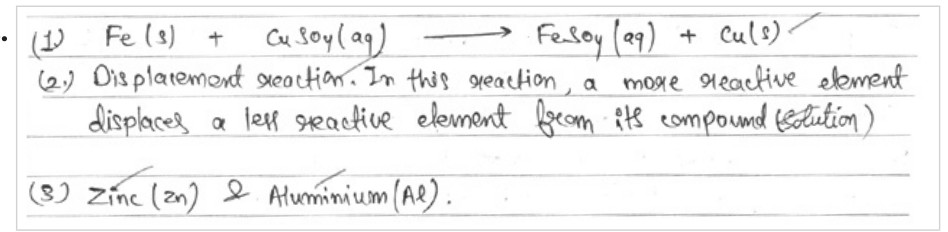 (1) Fe (s) + CuSO4 (aq) ⟶ FeSO4 (aq) + Cu(s)
(2.) Displacement reaction. In this reaction, a more reactive element
displaces a less reactive element from its compound (solution)
(3) Zinc (Zn) & Aluminium (Al).